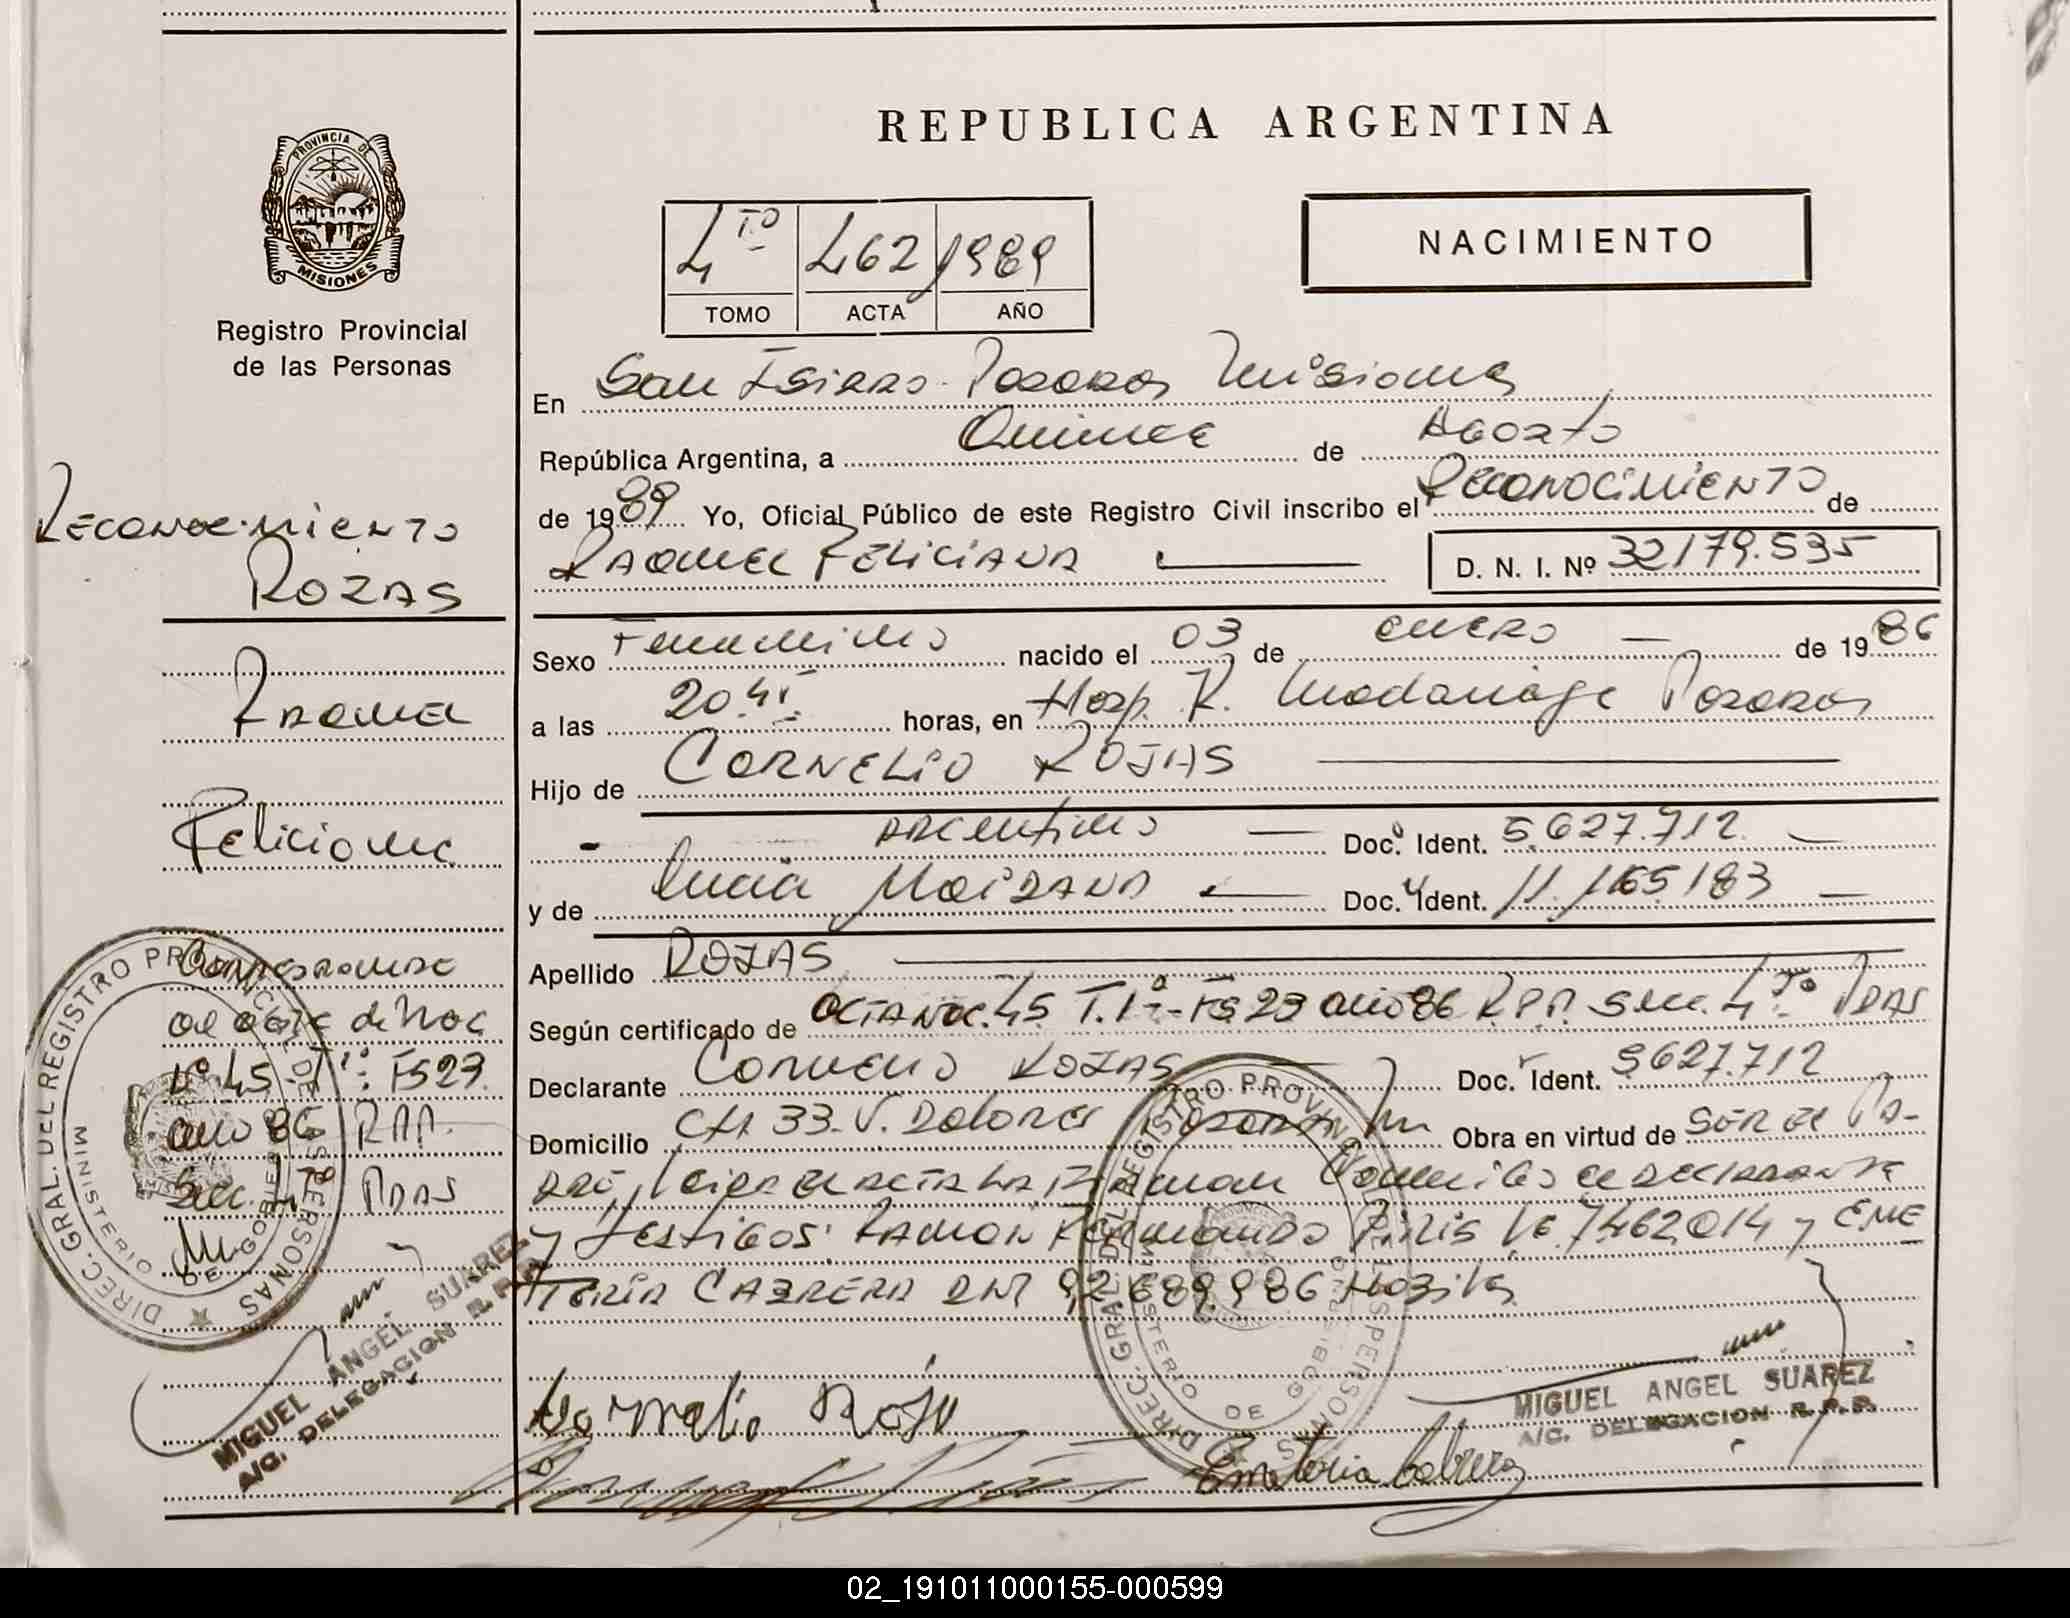 REPUBLICA ARGENTINA
PROVINCIA DE
MISIONES
Registro Provincial
de las Personas
4 TO 462 1989
TOMO ACTA AÑO
NACIMIENTO
En San Isidro Posadas Misiones
República Argentina, a Quince de Agosto
de 1989 Yo, Oficial Público de este Registro Civil inscribo el Reconocimiento de
RAQUEL FELICIANA D. N. I. Nº 32179.535
Sexo Femenino nacido el 03 de enero de 1986
a las 20.45 horas, en Hosp. R. Madariaga Posadas
Hijo de CORNELIO ROJAS
argentino Doc. Ident. 5.627.712
y de Lucia Doc. Ident. 11.165.183
Apellido ROJAS
Según certificado de acta nac. 45 T. 1º - Fs 23 año 86 R.P.P. Sec. 4 TO PDAS
Declarante Cornelio ROJAS Doc. Ident. 5627.712
Domicilio CH 33 - V. Dolores Posadas Obra en virtud de SER EL PA-
DRE, Leida el acta la firman conmigo el declarante
y testigos: RAMON FERNANDO PIRIS 7.462.014 y EME
TERIA CABRERA DNI 92.689.986
Cornelio Rojas
Emeteria Cabrera
MIGUEL ANGEL SUAREZ
A/C. DELEGACION R. P. P.
RECONOCIMIENTO
ROJAS
Raquel
Feliciana
Corresponde
al acta de Nac
Nº 45 - T 1º: FS 23
año 86 R.P.P.
Sec. 4 TO PDAS
MIGUEL ANGEL SUAREZ
A/C. DELEGACION R. P. P.
DIREC. GRAL. DEL REGISTRO PROVINCIAL DE LAS PERSONAS
MINISTERIO DE GOBIERNO
DIREC. GRAL. DEL REGISTRO PROVINCIAL DE LAS PERSONAS
MINISTERIO DE GOBIERNO
02_191011000155-000599